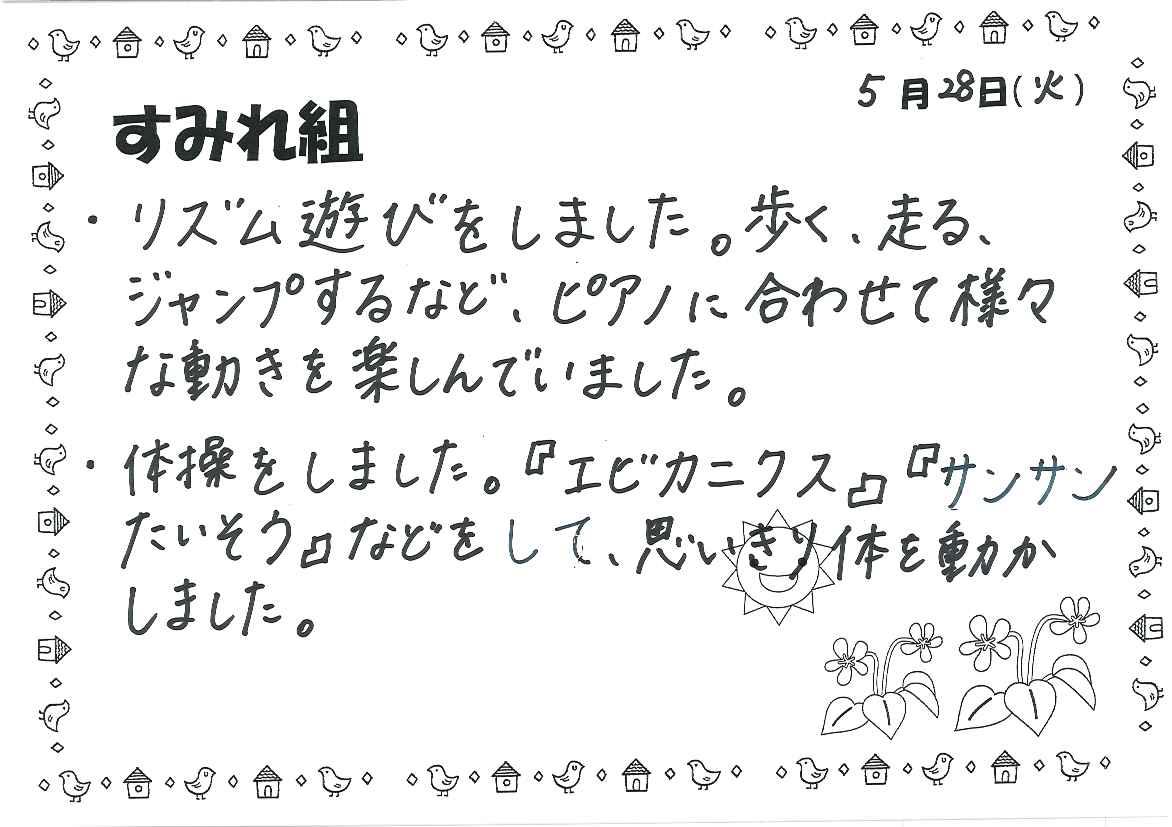 5月28日(火)
すみれ組
・リズム遊びをしました。歩く、走る、
ジャンプするなど、ピアノに合わせて様々
な動きを楽しんでいました。
・体操をしました。『エビカニクス』『サンサン
たいそう』などをして、思いきり体を動か
しました。